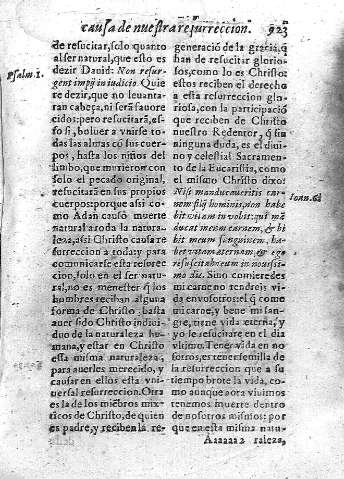 causa de nuestra resurreccion. 923
de resucitar, solo quanto
al ser natural, q esto es lo que
dezir Dauid: Non resur-
Psalm. 1.
gent impij in iudicio. Quie
re dezir, que no leuanta-
ran cabeça, ni serã fauore
cidos: pero resucitarã, es-
to si, boluer a vnirse todas
las almas cõ sus cuer-
pos, hasta los niños del
limbo, que murieron con
solo el pecado original,
resucitarà en sus propios
cuerpos: porque assi co-
mo Adan causò muerte
natural a toda la natura-
leza, assi Christo causa re
surreccion a toda: y para
comunicarse esta resurrec
cion, solo en el ser natural,
no es menester q los
hombres reciban alguna
forma de Christo, basta
auer sido Christo indiui-
duo de la naturaleza hu
mana, y estar en Christo
esta misma naturaleza,
para auerles merecido, y
causar en ellos esta vni-
uersal resurreccion. Otra
es la de los miẽbros mis-
ticos de Christo, de quien
es padre, y reciben la re-
generaciõ de la gracia, q
han de resucitar glorio-
sos, como lo es Christo:
estos reciben el derecho
a esta resurreccion glo-
riosa, con la participaciõ
que reciben de Christo
nuestro Redentor, q sin
ninguna duda, es el diui-
no y celestial Sacramento
de la Eucaristia, como
el mismo Christo dixo:
Nisi manducaueritis car-
Ioan. 6.
nem filij hominis, non habe
bitis vitam in vobis: qui mã
ducat meam carnem, & bi
bit meum sanguinem, ha-
bet vitam æternam, & ego
resuscitabo eum in nouissi-
mo die. Sino comieredes
mi carne no tendreis vi-
da en vosotros: el q come
mi carne, y beue mi san-
gre, tiene vida eterna, y
yo le resucitare en el dia
vltimo. Tener vida en no
sotros, es tener semilla de
la resurreccion que a su
tiempo brote la vida, co-
mo aunque aora viuimos
tenemos muerte dentro
de nosotros mismos: por
que en esta misma natu-
Aaaaaa 2 raleza,